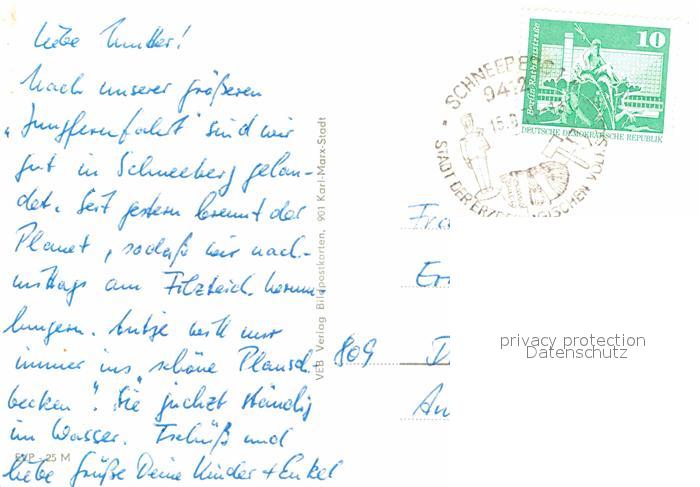 Liebe Mutter!
Nach unserer größeren
"Jungfernfahrt" sind wir
gut in Schneeberg gelan-
det. Seit gestern brennt der
Planet, sodaß wir nach-
mittags am Filzteich herum-
lungern. Antje will nur
immer ins "schöne Plansch
becken". Sie juchzt ständig
im Wasser. Tschüß und
liebe Grüße Deine Kinder + Enkel
EVP -25 M
VEB Verlag Bildpostkarten, 901 Karl-Marx-Stadt
SCHNEEBERG 1
9412
15.8.
STADT DER ERZGEBIRGISCHEN VOLKS
Berlin Rathausstraße
10
DEUTSCHE DEMOKRATISCHE REPUBLIK
809 D
An
privacy protection
Datenschutz